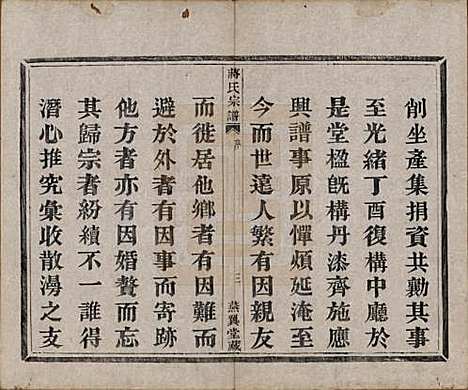 削坐產集捐資共勷其事
至光緒丁酉復構中廳於
是堂楹既構丹漆齊施應
興譜事原以憚煩延淹至
今而世遠人繁有因親友
蔣氏宗譜
序
三
燕翼堂藏
而徙居他鄉者有因難而
避於外者有因事而寄跡
他方者亦有因婚贅而忘
其歸宗者紛續不一誰得
潛心推究彙收散漫之支